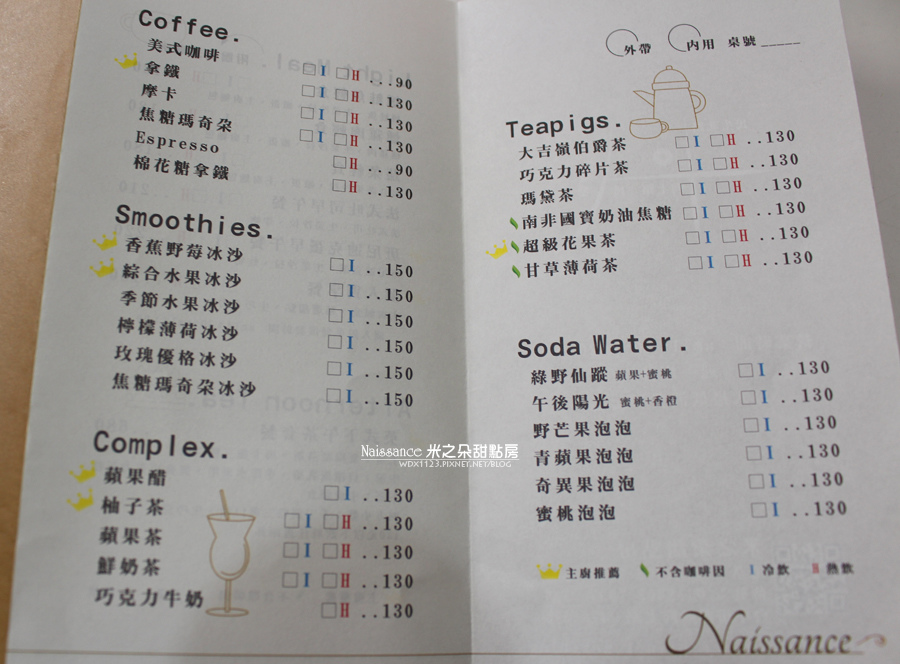 Coffee.
美式咖啡 □ I □ H ...90
拿鐵 □ I □ H ..130
摩卡 □ I □ H ..130
焦糖瑪奇朵 □ I □ H ..130
Espresso □ H ...90
棉花糖拿鐵 □ H ..130
Smoothies.
香蕉野莓冰沙 □ I ..150
綜合水果冰沙 □ I ..150
季節水果冰沙 □ I ..150
檸檬薄荷冰沙 □ I ..150
玫瑰優格冰沙 □ I ..150
焦糖瑪奇朵冰沙 □ I ..150
Complex.
蘋果醋 □ I ..130
柚子茶 □ I □ H ..130
蘋果茶 □ I □ H ..130
鮮奶茶 □ I □ H ..130
巧克力牛奶 □ H ..130
外帶 內用 桌號_____
Teapigs.
大吉嶺伯爵茶 □ I □ H ..130
巧克力碎片茶 □ I □ H ..130
瑪黛茶 □ I □ H ..130
南非國寶奶油焦糖 □ I □ H ..130
超級花果茶 □ I □ H ..130
甘草薄荷茶 □ I □ H ..130
Soda Water.
綠野仙蹤 蘋果+蜜桃 □ I ..130
午後陽光 蜜桃+香橙 □ I ..130
野芒果泡泡 □ I ..130
青蘋果泡泡 □ I ..130
奇異果泡泡 □ I ..130
蜜桃泡泡 □ I ..130
主廚推薦 不含咖啡因 I 冷飲 H 熱飲
Naissance
Naissance 米之朵甜點房
WDX1123.PIXNET.NET/BLOG